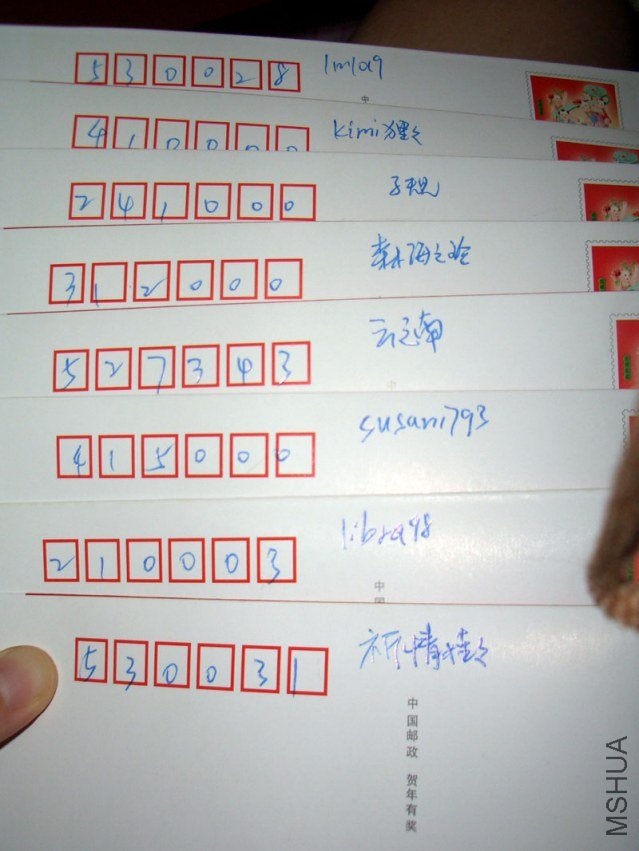 530028 lmla9
中
410000 kimi狸
241000 子琨
312000
527343 云之南
415000 susani793
210003 libra98
中国
530031
中国邮政 贺年有奖
MSHUA